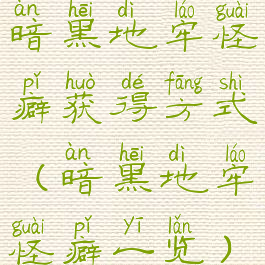 àn hēi dì láo guài
暗黑地牢怪
pǐ huò dé fāng shì
癖获得方式
àn hēi dì láo
（暗黑地牢
guài pǐ yī lǎn
怪癖一览）